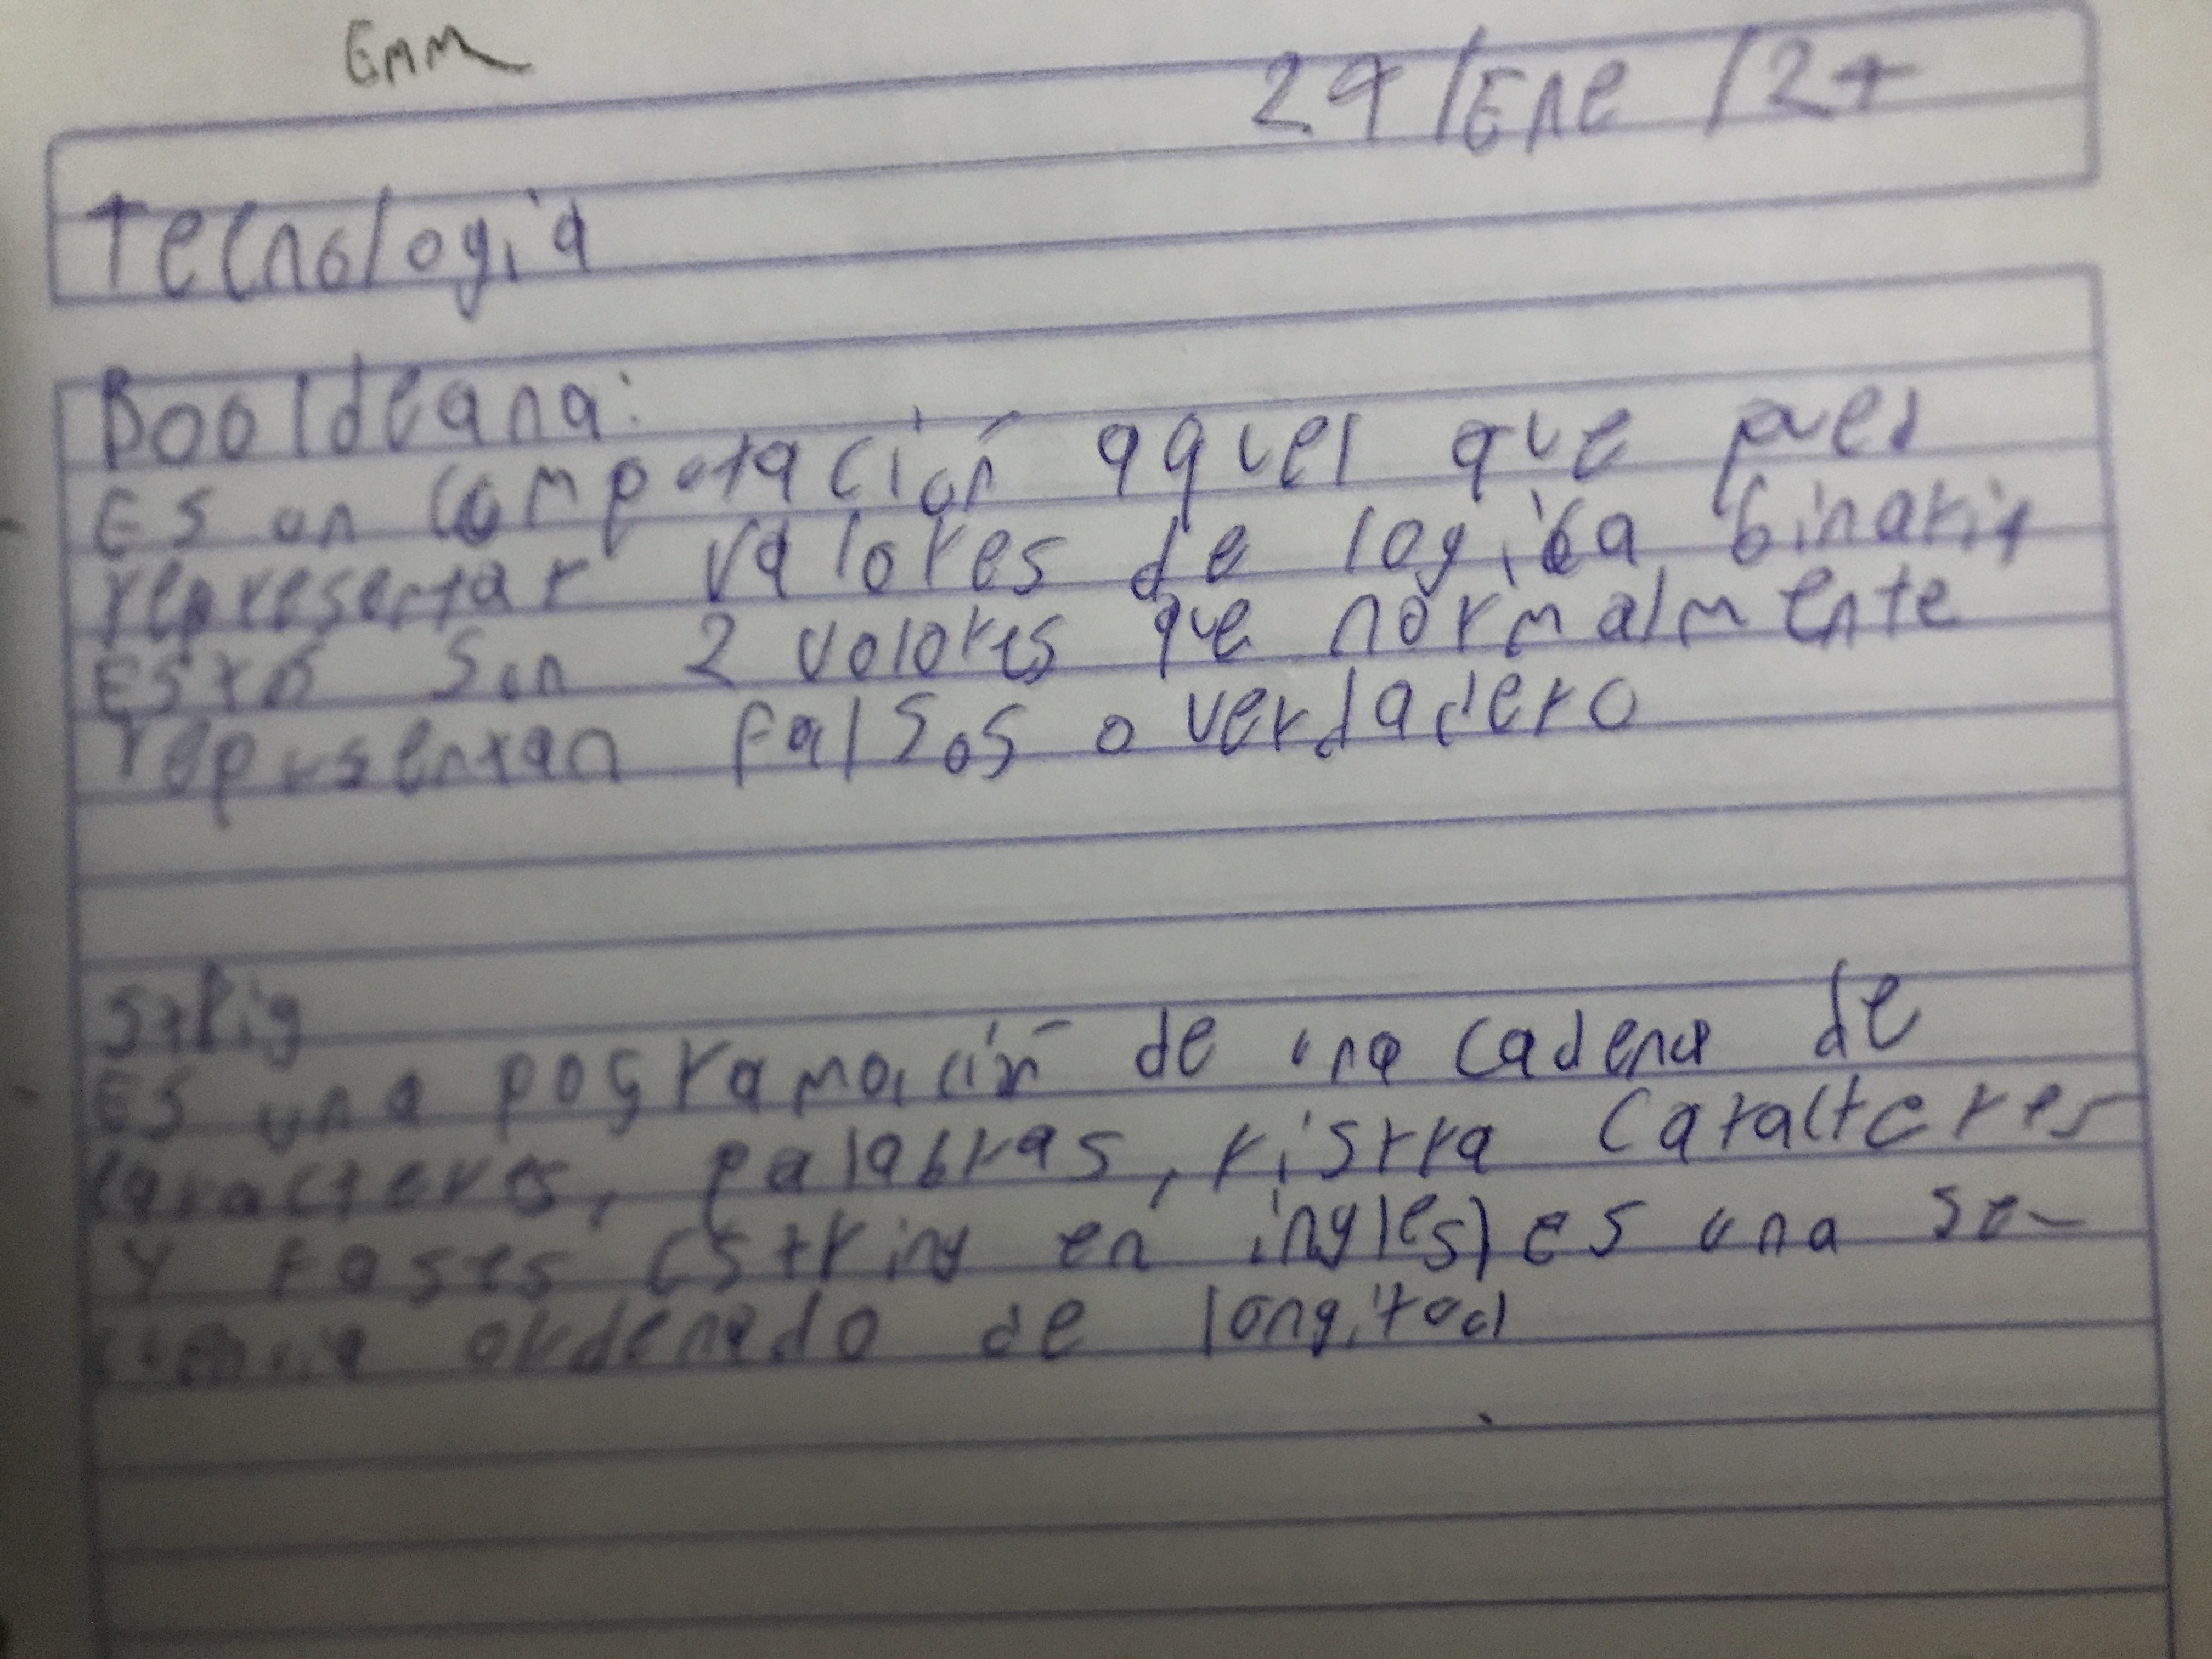 Emm
29/Ene/24
Tecnología
Booldeana:
Es un computación aquel que pued
representar valores de logica binaria
Esto son 2 volores que normalmente
represenxan falsos o verdadero
String
Es una pogramación de una cadena de
caracteres, palabras, ristra Caracteres
y fases (string en ingles) es una se-
cuencia ordenado de longitud